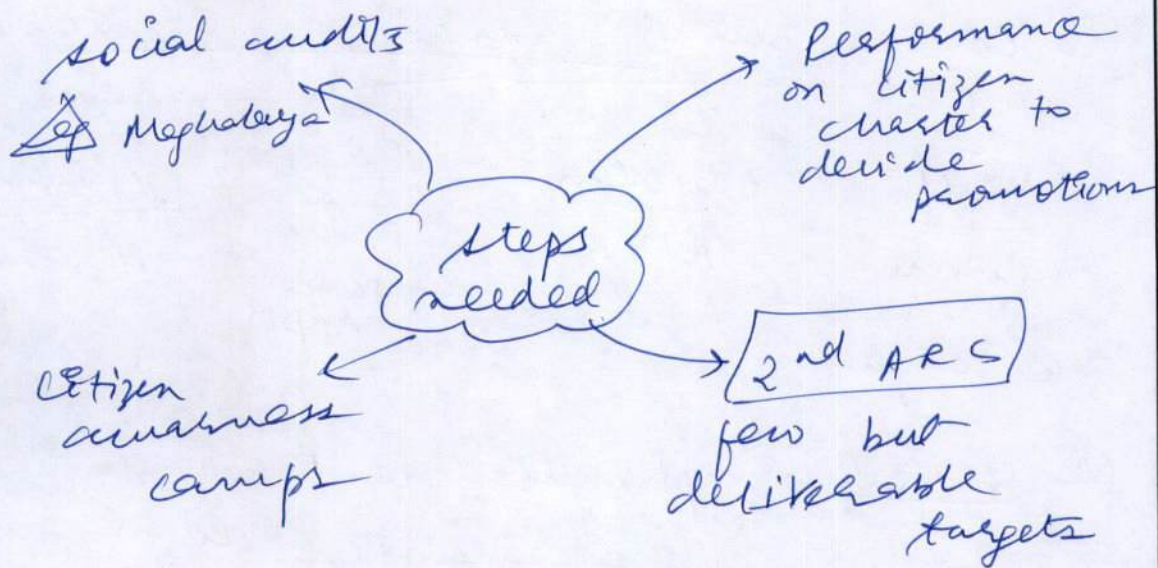 social audits
eg Meghalaya
Performance
on citizen
charter to
decide
promotions
steps
needed
Citizen
awarness
camps
2nd ARC
few but
deliverable
targets